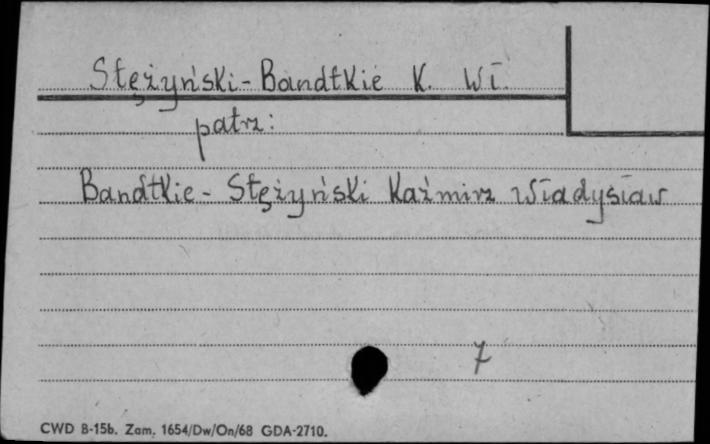 Stężyński-Bandtkie K. Wł.
patrz:
Bandtkie-Stężyński Kaźmirz Władysław
7
CWD B-15b. Zam. 1654/Dw/On/68 GDA-2710.